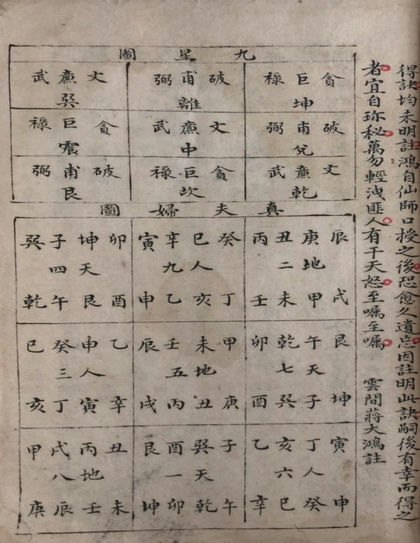 得訣均未明註鴻自仙師口授之後恐愈久遺忘因註明此訣嗣後有幸而得之
者宜自珍秘萬勿輕洩匪人有干天怒至囑至囑 雲間蔣大鴻註
九星圖
貪巨祿 破甫弼 文廉武
坤 離 巽
破甫弼 文廉武 貪巨祿
兌 中 震
文廉武 貪巨祿 破甫弼
乾 坎 艮
真夫婦圖
辰庚丑丙 癸巳辛寅 卯坤子巽
地二 人九 天四
戌甲未壬 丁亥乙申 酉艮午乾
艮午乾卯 甲未壬辰 乙申癸巳
天七 地五 人三
坤子巽酉 庚丑丙戌 辛寅丁亥
寅丁亥乙 子巽酉艮 丑丙戌甲
人六 天一 地八
申癸巳辛 午乾卯坤 未壬辰庚